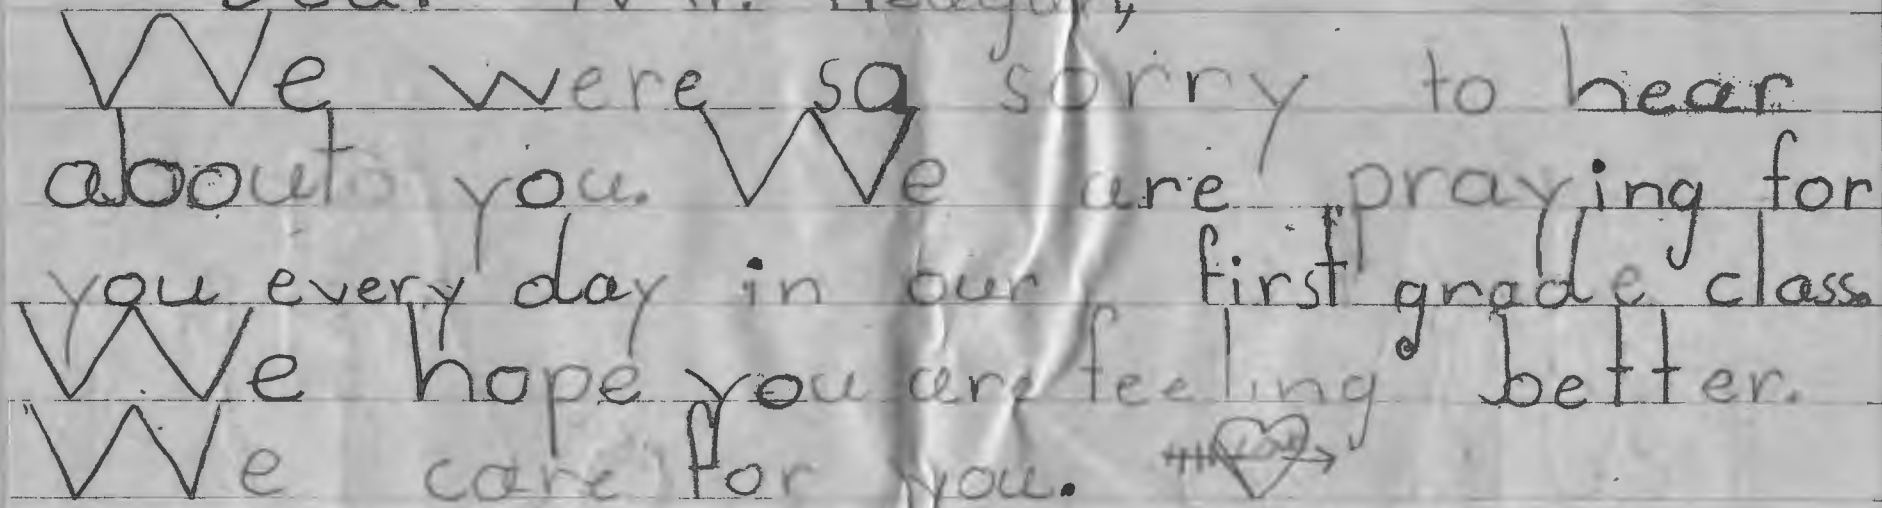 Dear Mr. Reagan,
We were so sorry to hear
about you. We are praying for
you every day in our first grade class.
We hope you are feeling better.
We care for you.